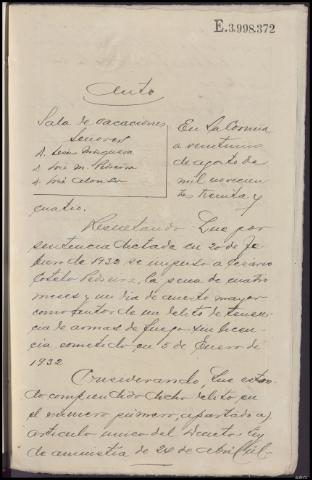 E.3.998.372
Auto
Sala de vacaciones
Señores
D. Luis
D. José M.
D. José
En La Coruña
a veintiuno
de agosto de
mil novecien
tos treinta y
cuatro.
Resultando Que por
sentencia dictada en 20 de Fe
brero de 1932 se impuso a Cesareo
Cotelo la pena de cuatro
meses y un dia de arresto mayor
como autor de un delito de tenen
cia de armas de fuego sin licen
cia cometido en 5 de Enero de
1932
Considerando, Que estan
do comprendido dicho delito, en
el numero primero, apartado a)
articulo unico del Decreto Ley
de amnistia de 24 de Abril